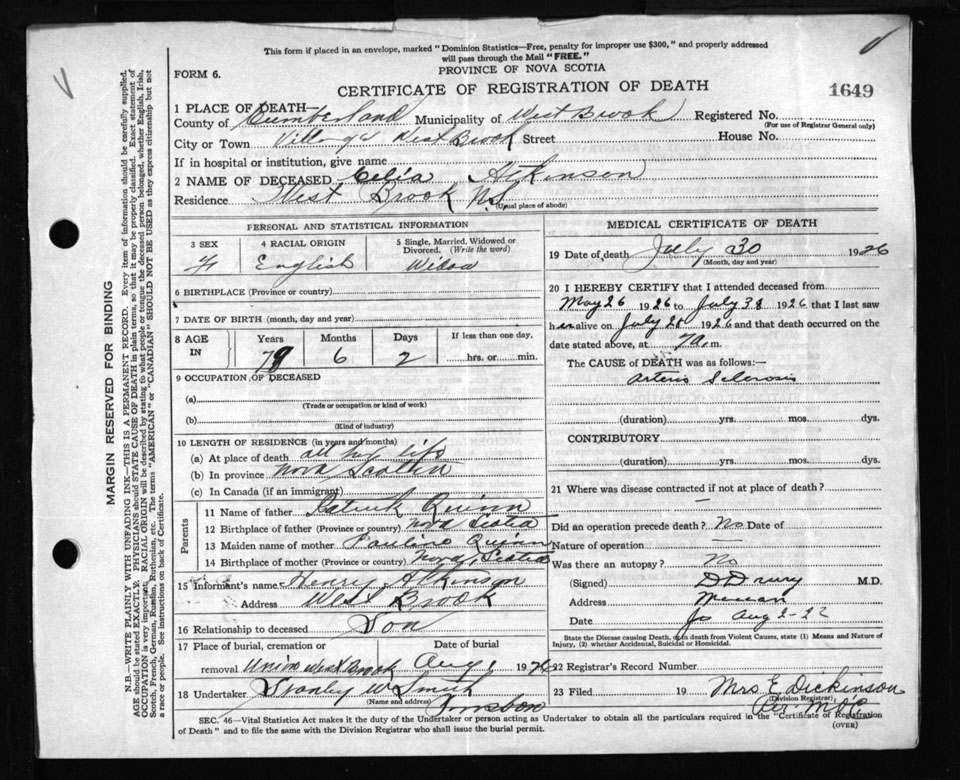 This form if placed in an envelope, marked "Dominion Statistics—Free, penalty for improper use $300," and properly addressed
will pass through the Mail "FREE."
PROVINCE OF NOVA SCOTIA
FORM 6.
CERTIFICATE OF REGISTRATION OF DEATH
1649
1 PLACE OF DEATH—
County of Cumberland Municipality of West Brook Registered No.
(For use of Registrar General only)
City or Town Village West Brook Street House No.
If in hospital or institution, give name
2 NAME OF DECEASED Celia Atkinson
Residence West Brook N.S.
(Usual place of abode)
PERSONAL AND STATISTICAL INFORMATION
3 SEX
4 RACIAL ORIGIN
5 Single, Married, Widowed or Divorced. (Write the word)
F English Widow
6 BIRTHPLACE (Province or country)
7 DATE OF BIRTH (month, day and year)
8 AGE IN
Years Months Days If less than one day,
79 6 2 hrs. or min.
9 OCCUPATION OF DECEASED
(a)
(Trade or occupation or kind of work)
(b)
(Kind of industry)
10 LENGTH OF RESIDENCE (in years and months)
(a) At place of death all my life
(b) In province Nova Scotia
(c) In Canada (if an immigrant)
Parents
11 Name of father Patrick Quinn
12 Birthplace of father (Province or country) Nova Scotia
13 Maiden name of mother Pauline Quinn
14 Birthplace of mother (Province or country) Nova Scotia
15 Informant's name Henry Atkinson
Address West Brook
16 Relationship to deceased Son
17 Place of burial, cremation or removal Date of burial
Union West Brook Aug 1 19
18 Undertaker Stanley W Smith
(Name and address)
MEDICAL CERTIFICATE OF DEATH
19 Date of death July 30 1926
(Month, day and year)
20 I HEREBY CERTIFY that I attended deceased from
May 26 1926 to July 1926 that I last saw
her alive on July 1926 and that death occurred on the
date stated above, at 7 a.m.
The CAUSE of DEATH was as follows:—
Arterio Sclerosis
(duration) yrs. mos. dys.
CONTRIBUTORY
(duration) yrs. mos. dys.
21 Where was disease contracted if not at place of death?
Did an operation precede death? No Date of
Nature of operation —
Was there an autopsy? No
(Signed) D Drury M.D.
Address
Date Aug
State the Disease causing Death, or in death from Violent Causes, state (1) Means and Nature of Injury, (2) whether Accidental, Suicidal or Homicidal.
22 Registrar's Record Number
23 Filed 19 Mrs E. Dickinson
(Division Registrar)
SEC. 46—Vital Statistics Act makes it the duty of the Undertaker or person acting as Undertaker to obtain all the particulars required in the "Certificate of Registration
of Death" and to file the same with the Division Registrar who shall issue the burial permit.
(OVER)
MARGIN RESERVED FOR BINDING
N.B.—WRITE PLAINLY WITH UNFADING INK—THIS IS A PERMANENT RECORD. Every item of information should be carefully supplied.
AGE should be stated EXACTLY. PHYSICIANS should STATE CAUSE OF DEATH in plain terms, so that it may be properly classified. Exact statement of
OCCUPATION is very important. RACIAL ORIGIN will be described by stating to what people or tongue the deceased person belonged, whether English, Irish,
Scotch, French, German, Russian, Ruthenian, etc. The terms "AMERICAN" or "CANADIAN" SHOULD NOT BE USED as they express citizenship but not
a race or people. See instructions on back of Certificate.